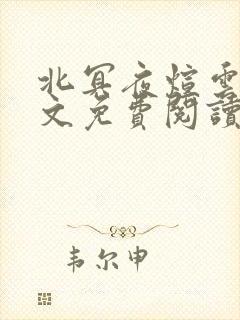 北冥夜煊雲
文免費閱讀
韦尔申